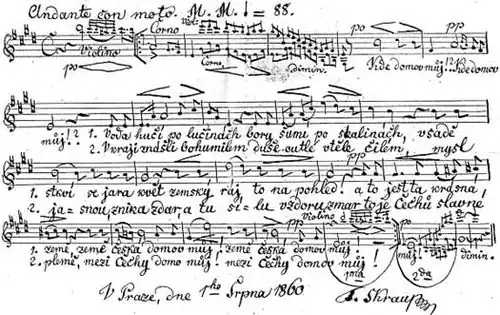 Andante con moto. M. M. ♩ = 88.
Violino Corno Viol. Corno dimin. po pp
po Kde domov můj!? Kde domov
můj!? 1. Voda hučí po lučinách bory šumí po skalinách, v sadě
2. V kraji znáš-li bohumilém duše outlé v těle čilém mysl
1. stkví se jara květ zemský ráj to na pohled. a to jest ta krásná,
2. ja=snou znik a zdar, a tu sí=lu vzdoru zmar to je Čechů slavné
violino pp
1. země, země česká domov můj, země česká domov můj!
2. plémě, mezi Čechy domov můj! mezi Čechy domov můj!
1ma 2da dimin.
V Praze, dne 1ho Srpna 1860 F. Škraup